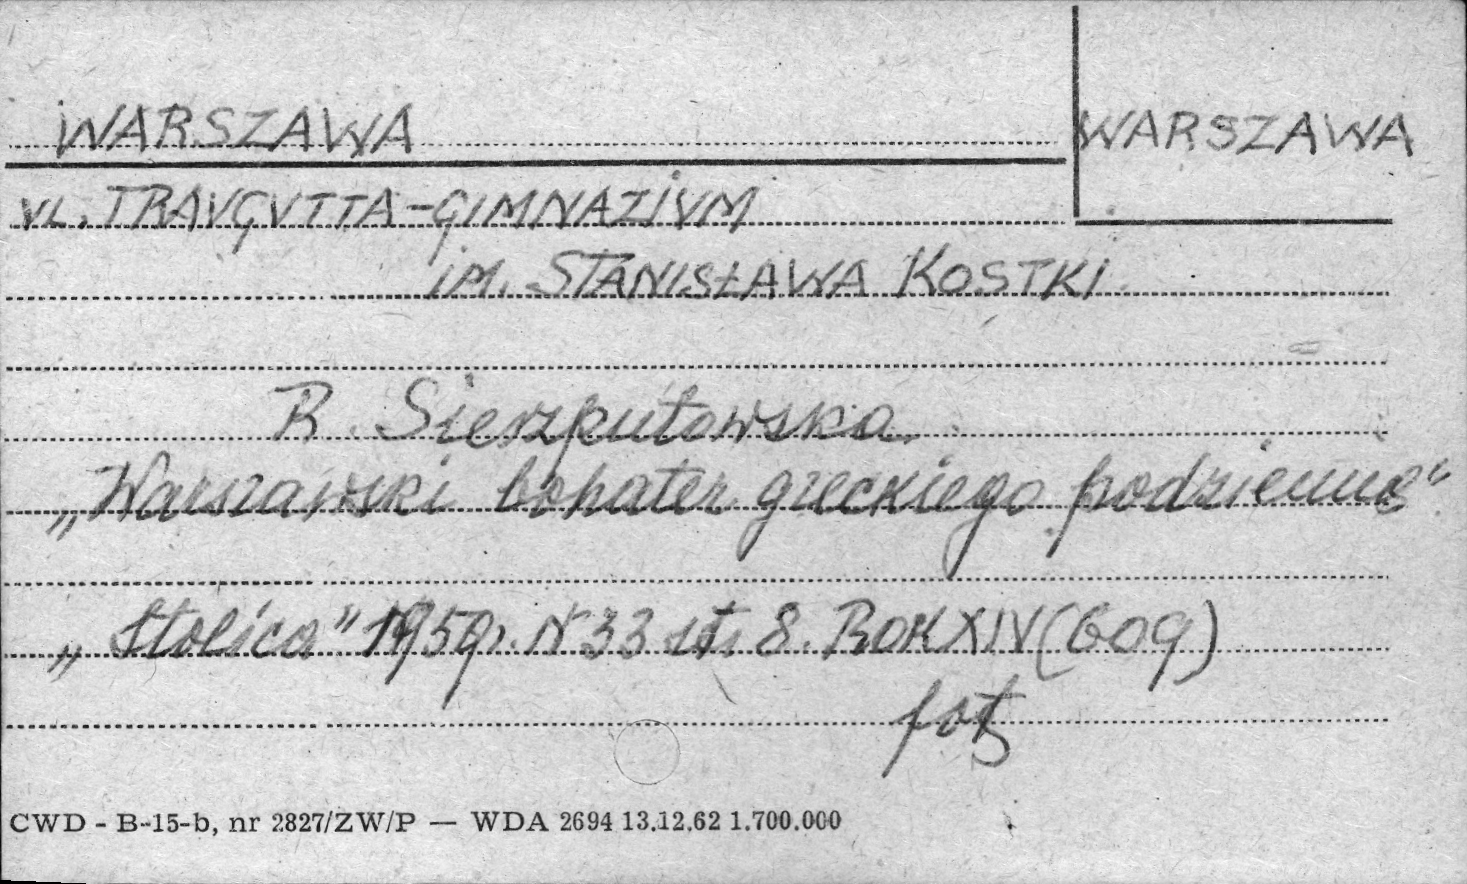 WARSZAWA
WARSZAWA
UL. TRAUGUTTA-GIMNAZIUM
IM. STANISŁAWA KOSTKI
R. Sierzputowska.
„Warszawski bohater greckiego podziemia"
„Stolica" 1959r. Nr 33 str. 8. ROK XIV (609)
fot.
CWD - B-15-b, nr 2827/ZW/P — WDA 2694 13.12.62 1.700.000